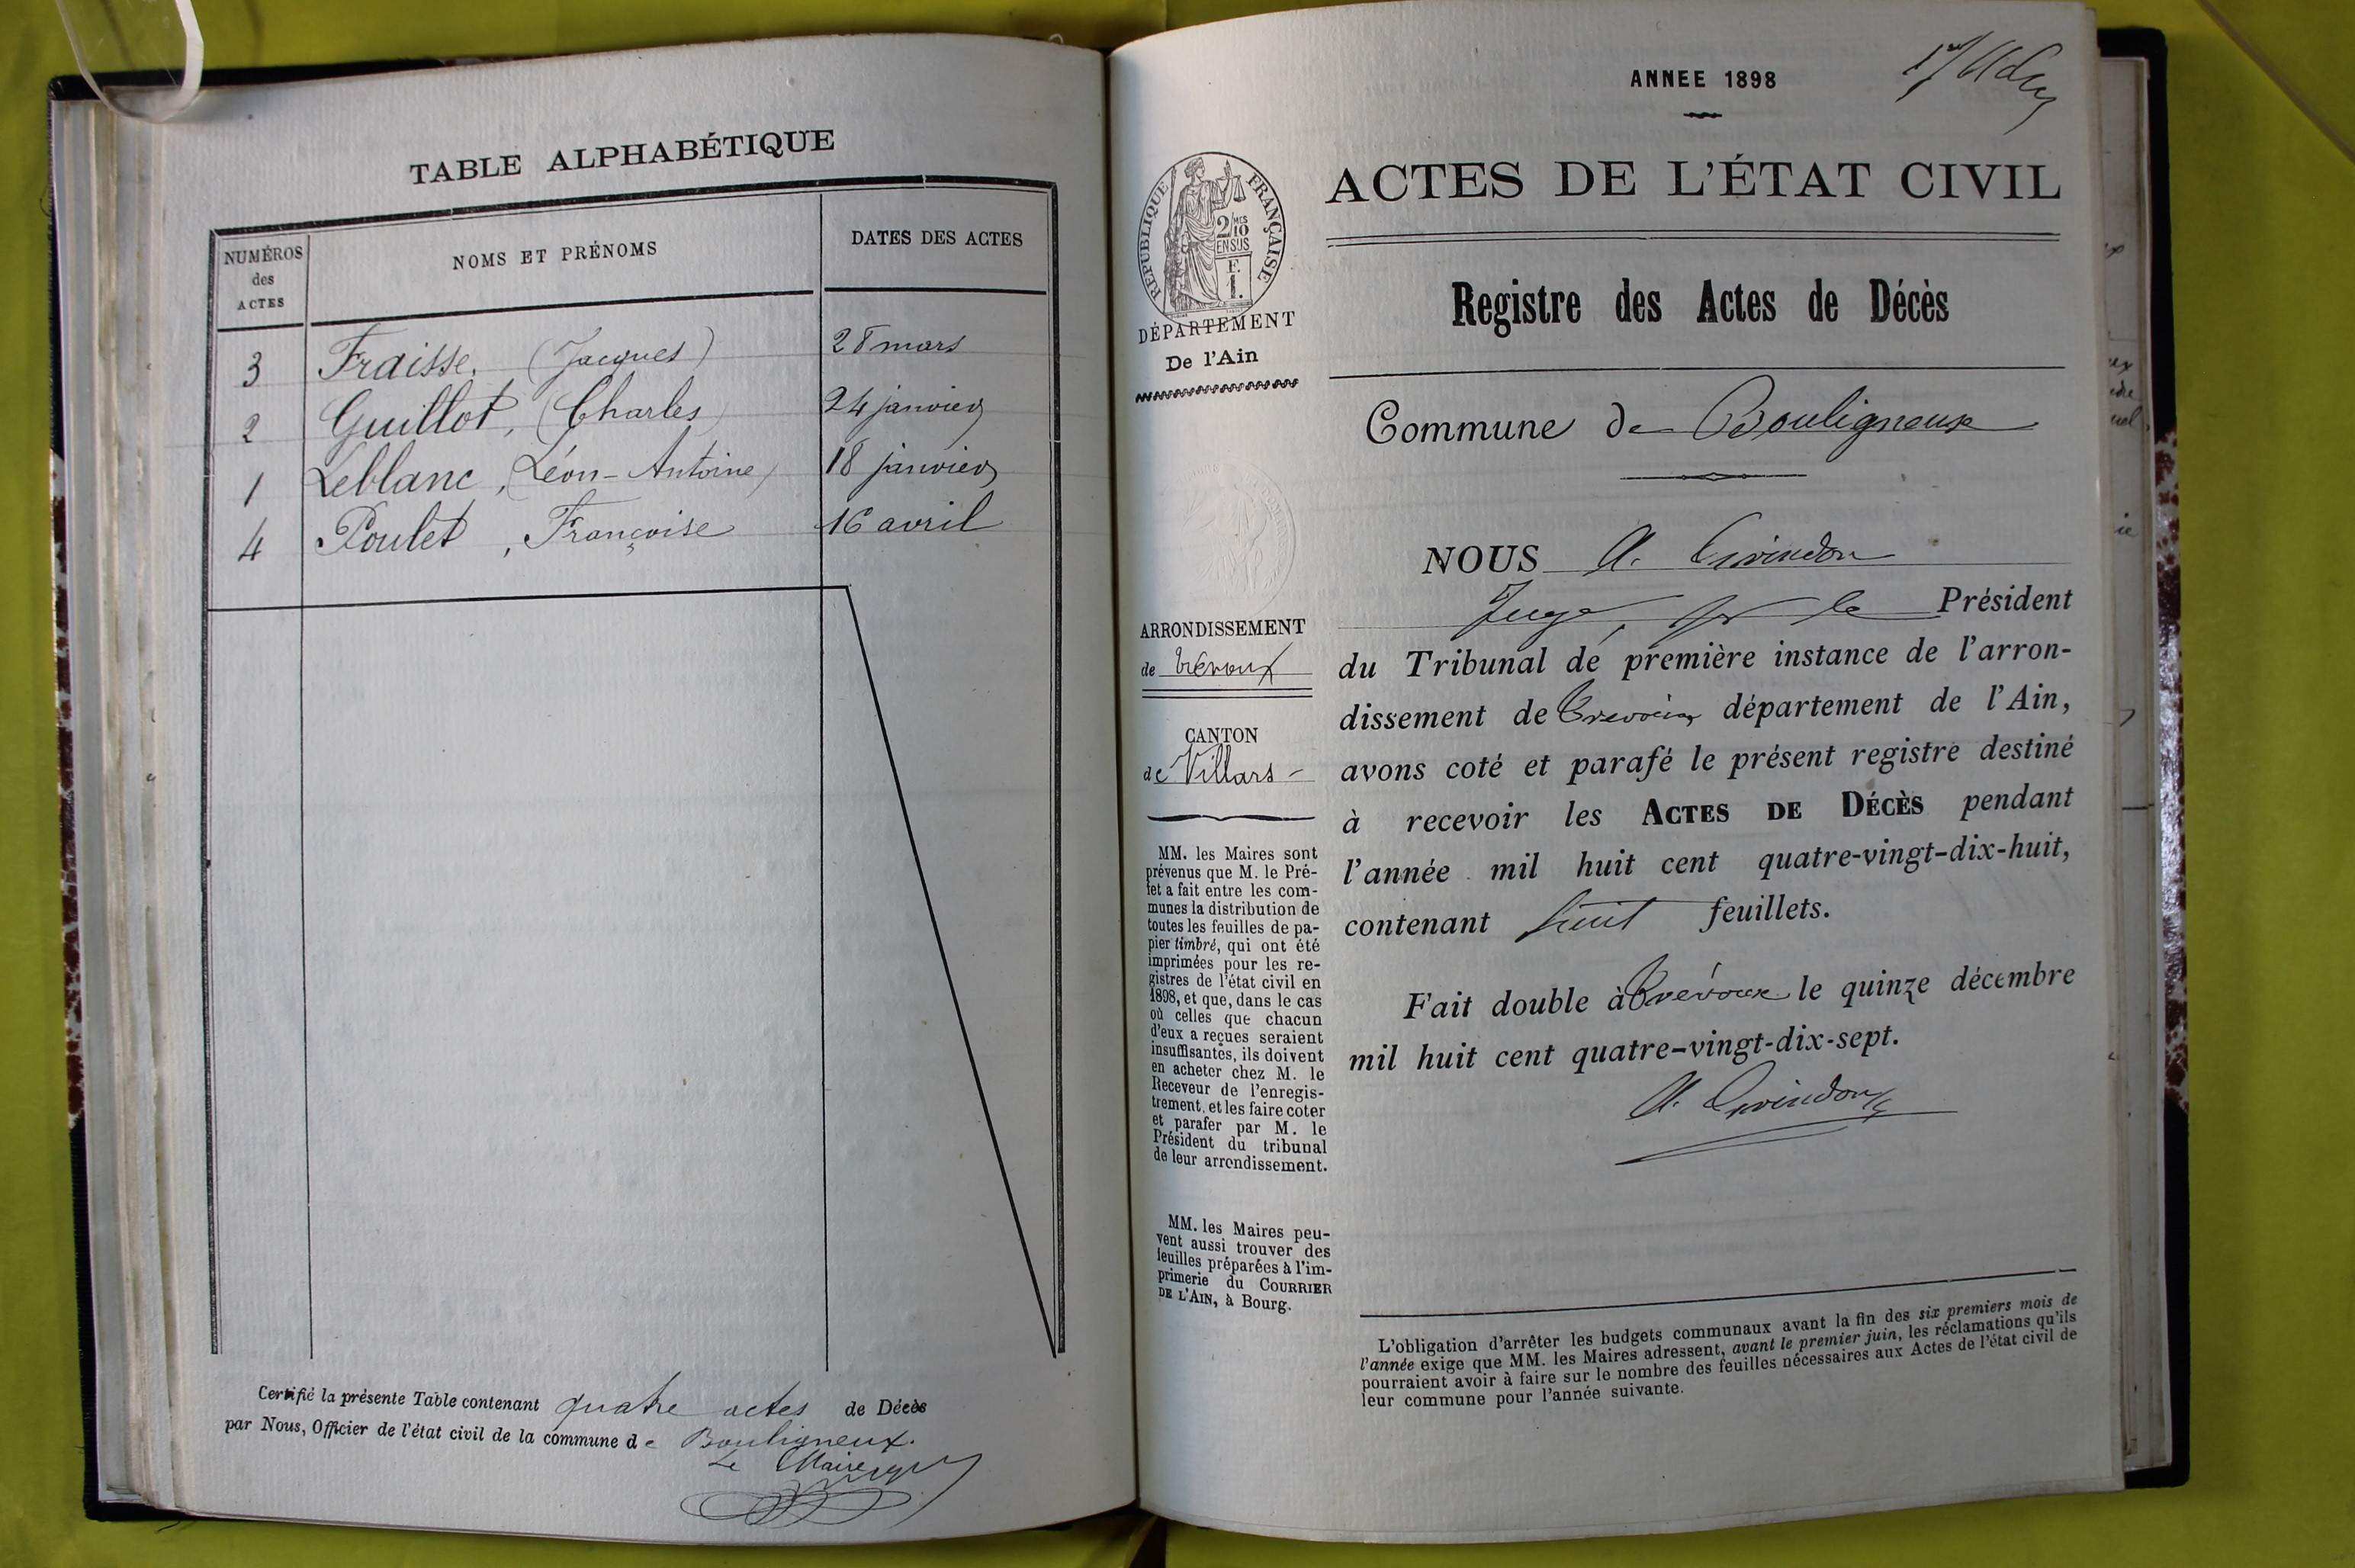 TABLE ALPHABÉTIQUE
NUMÉROS des ACTES NOMS ET PRÉNOMS DATES DES ACTES
3 Fraisse, (Jacques) 28 mars
2 Guillot, (Charles) 24 janvier
1 Leblanc, (Léon-Antoine) 18 janvier
4 Poulet, Françoise 16 avril
Certifié la présente Table contenant quatre actes de Décès
par Nous, Officier de l'état civil de la commune de Bouligneux.
Le Maire
ANNEE 1898
ACTES DE L'ÉTAT CIVIL
RÉPUBLIQUE FRANÇAISE
2/10 MES
EN SUS
F.
1.
DÉPARTEMENT
De l'Ain
ARRONDISSEMENT
de Trévoux
CANTON
de Villars
MM. les Maires sont
prévenus que M. le Pré-
fet a fait entre les com-
munes la distribution de
toutes les feuilles de pa-
pier timbré, qui ont été
imprimées pour les re-
gistres de l'état civil en
1898, et que, dans le cas
où celles que chacun
d'eux a reçues seraient
insuffisantes, ils doivent
en acheter chez M. le
Receveur de l'enregis-
trement, et les faire coter
et parafer par M. le
Président du tribunal
de leur arrondissement.
MM. les Maires peu-
vent aussi trouver des
feuilles préparées à l'im-
primerie du COURRIER
DE L'AIN, à Bourg.
Registre des Actes de Décès
Commune de Bouligneux
NOUS A.
Juge, pr le Président
du Tribunal de première instance de l'arron-
dissement de Trévoux département de l'Ain,
avons coté et parafé le présent registre destiné
à recevoir les ACTES DE DÉCÈS pendant
l'année mil huit cent quatre-vingt-dix-huit,
contenant huit feuillets.
Fait double à Trévoux le quinze décembre
mil huit cent quatre-vingt-dix-sept.
A.
L'obligation d'arrêter les budgets communaux avant la fin des six premiers mois de
l'année exige que MM. les Maires adressent, avant le premier juin, les réclamations qu'ils
pourraient avoir à faire sur le nombre des feuilles nécessaires aux Actes de l'état civil de
leur commune pour l'année suivante.